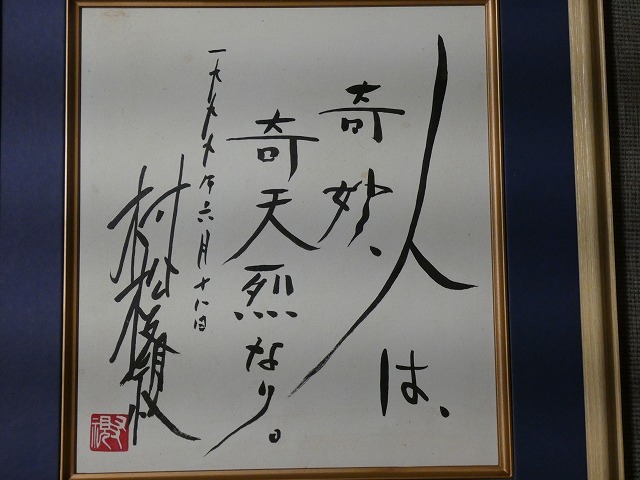 人は、
奇妙、
奇天烈なり。
一九九九年六月十八日
村松友視